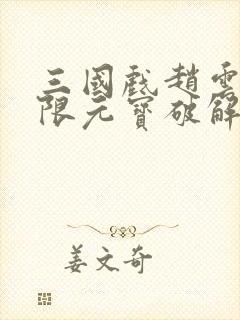 三國戲趙雲
限元寶破解
姜文奇